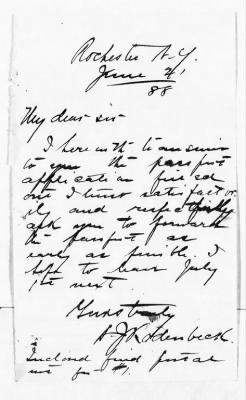 Rochester N.Y.
June 4,
88
My dear sir
I here with transmit
to you the passport
application filled
out I trust satisfactor
ily and respectfully
ask you to forward
the passport as
early as possible. I
hope to leave July
1st next.
Yours truly
A J Rodenbeck.
Inclosed find postal
note for $1.